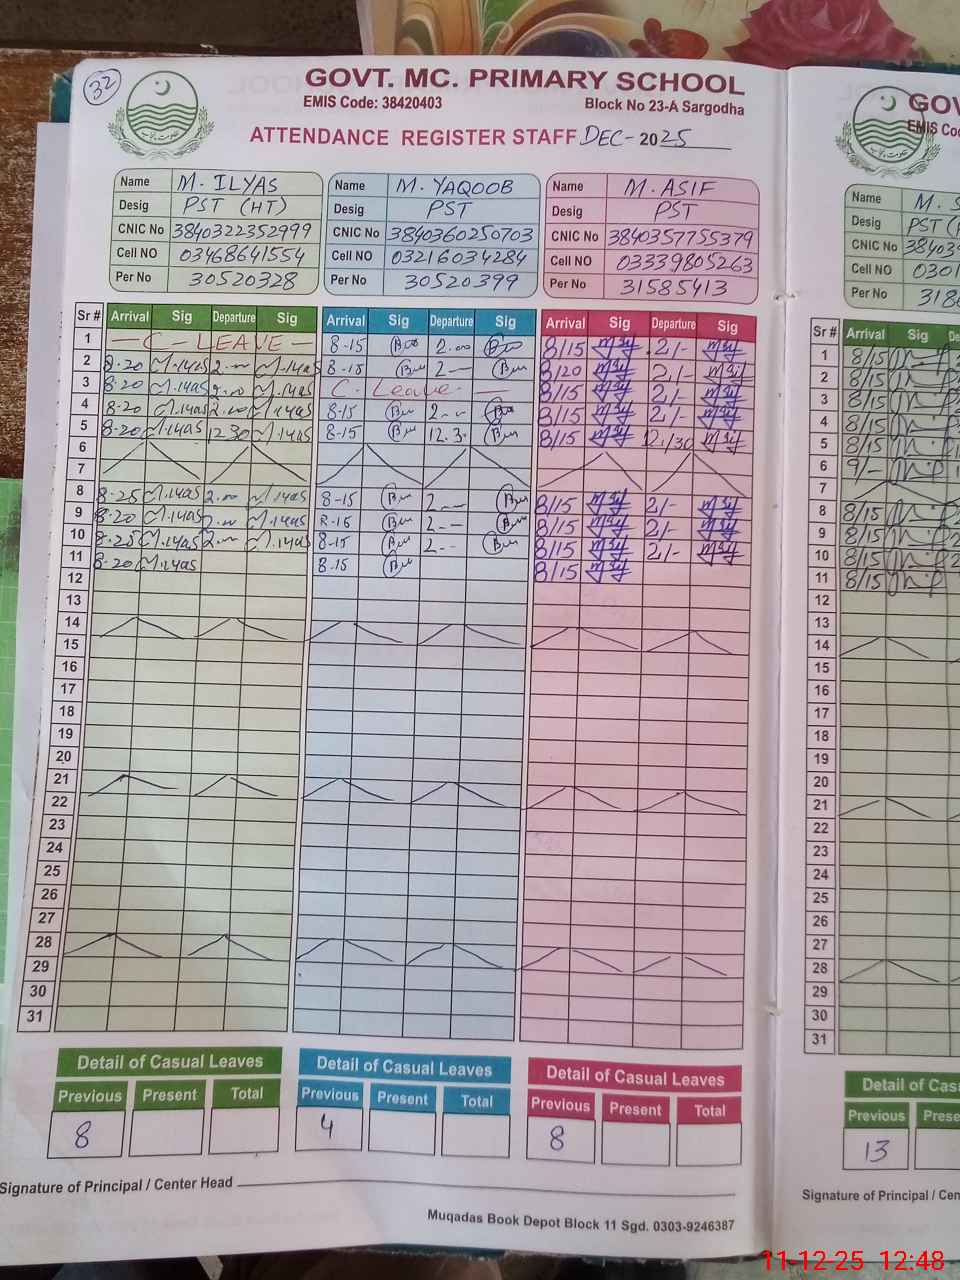 32
GOVT. MC. PRIMARY SCHOOL
EMIS Code: 38420403 Block No 23-A Sargodha
ATTENDANCE REGISTER STAFF DEC- 2025
Name M. ILYAS Name M. YAQOOB Name M. ASIF
Desig PST (HT) Desig PST Desig PST
CNIC No 3840322352999 CNIC No 3840360250703 CNIC No 3840357755379
Cell NO 03468641554 Cell NO 03216034284 Cell NO 03339805263
Per No 30520328 Per No 30520399 Per No 31585413
Sr # Arrival Sig Departure Sig Arrival Sig Departure Sig Arrival Sig Departure Sig
1 C LEAVE 8-15 2.00 8/15 2/-
2 8-20 M.ilyas 2.00 M.ilyas 8-15 2-- 8/20 2/-
3 8-20 M.ilyas 2.00 M.ilyas C. Leave 8/15 2/-
4 8-20 M.ilyas 2.00 M.ilyas 8-15 2-- 8/15 2/-
5 8-20 M.ilyas 1230 M.ilyas 8-15 12.3- 8/15 12/30
6
7
8 8-25 M.ilyas 2.00 M.ilyas 8-15 2-- 8/15 2/-
9 8-20 M.ilyas 2.00 M.ilyas 8-15 2-- 8/15 2/-
10 8-25 M.ilyas 2.00 M.ilyas 8-15 2-- 8/15 2/-
11 8-20 M.ilyas 8-15 8/15
12
13
14
15
16
17
18
19
20
21
22
23
24
25
26
27
28
29
30
31
Detail of Casual Leaves Detail of Casual Leaves Detail of Casual Leaves
Previous Present Total Previous Present Total Previous Present Total
8 4 8
Signature of Principal / Center Head
Muqadas Book Depot Block 11 Sgd. 0303-9246387
GOV
EMIS Co
Name M. S
Desig PST
CNIC No 38403
Cell NO 0301
Per No 318
Sr # Arrival Sig
1 8/15
2 8/15
3 8/15
4 8/15
5 8/15
6 9/-
7
8 8/15
9 8/15
10 8/15
11 8/15
12
13
14
15
16
17
18
19
20
21
22
23
24
25
26
27
28
29
30
31
Detail of Cas
Previous Prese
13
Signature of Principal / Cen
11-12-25 12:48